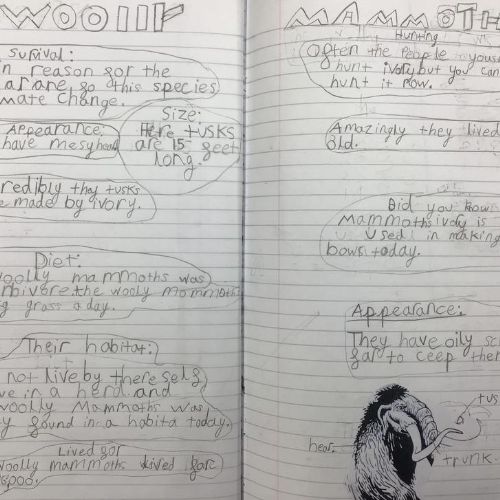 WOOLLY
survival:
n reason gor the
ar are, so this species
mate change.
Appearance:
have mesy head
Size:
Here tusks
are 15 geet
long.
redibly thay tusks
e made by ivory.
Diet:
woolly mammoths was
nivore. the wooly mommoths
g grass a day.
Their habitat:
not live by there self
ve in a herd and
woolly Mammoths was
y gound in a habita today.
Lived gor
woolly mammoths lived gore
spoo.
MAMMOTH
Hunting
Ogten the people youse
hunt ivory but you can
hunt it now.
Amazingly they lived
old.
Did you know
Mammoths ivory is
used in making
bows today.
Appearance:
They have oily sc
gar to ceep ther
tus
hear.
trunk.